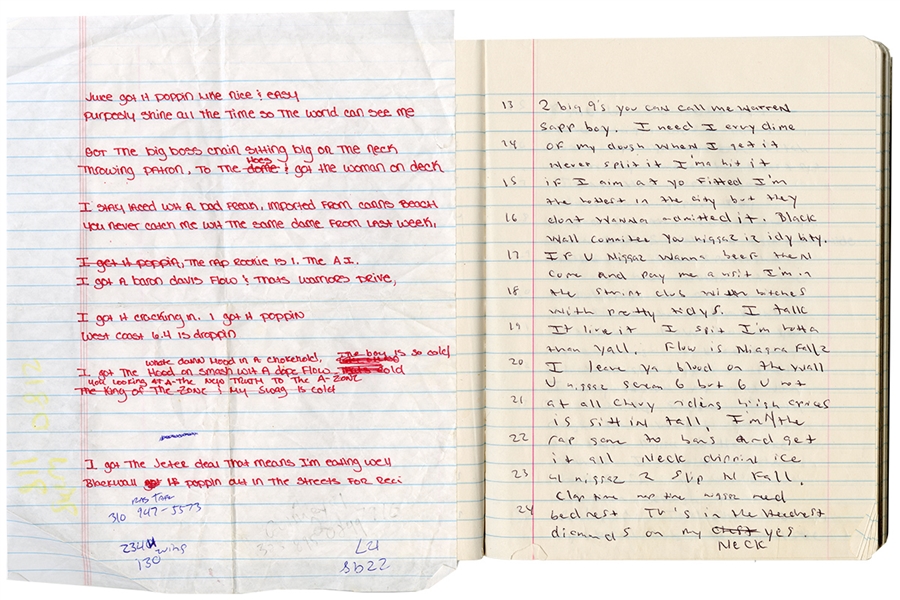 Juice got it poppin like nice & easy
purposly shine all the Time so The world can see me
Got The big boss chain sitting big on The neck
Hoes
Throwing patron, to The dome & got the woman on deck
I stay laced wit a bad freak, imported from Canns Beach
You never catch me wit the same dame from last week,
I get it poppin, The rap Rookie is 1. The A.I.
I got A baron davis Flow & Thats warriors Drive,
I got it cracking in. I got it poppin
West coast 6.4 is droppin
whole damn Hood in A chokehold, The boy is so cold
I got The Hood on smash wit A dope Flow Thats cold
you looking at A-The New TRUTH TO The A-Zone
The King of The-Zone & my swag is cold
I got The Jeter deal That means I'm eating well
Blackwall got it poppin out in The streets for
310 947-5573
2340
130
LU
sb22
13 2 big 9's you can call me Warren
Sapp boy. I need I evry dime
14 OF my dough when I get it
Never split it I'ma hit it
15 if I aim at yo Fitted I'm
the hottest in the city but they
16 dont wanna admitted it. Black
wall comittee you niggaz iz idylity.
17 If U Niggaz wanna beef then
come and pay me a visit I'm in
18 the strip club with bitches
with pretty tidys. I talk
19 It live it I spit I'm hotta
than yall. Flow is Niagra Fallz
20 I leave ya blood on the wall
U niggaz scream 6 but 6 U not
21 at all Chevy riding high
is sittin tall, I'm the
22 rap game to bans and get
it all Neck drippin ice
23 4 niggaz 2 Slip N Fall.
Clap him nap time niggaz need
24 bedrest TV's in the Headrest
diamonds on my yes.
Neck